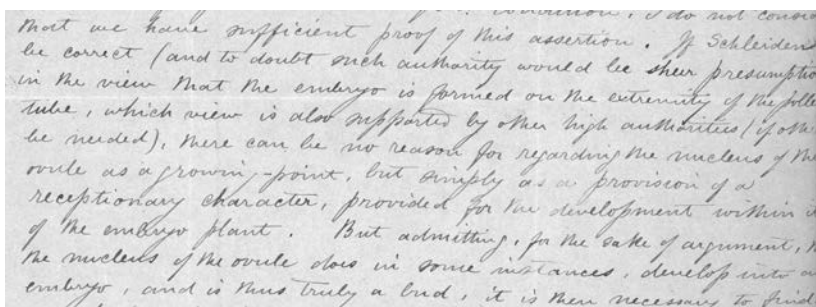 I do not conside
that we have sufficient proof of this assertion. If Schleiden
be correct (and to doubt such authority would be sheer presumptio
in the view that the embryo is formed on the extremity of the polle
tube, which view is also supported by other high authorities (if othe
be needed), there can be no reason for regarding the nucleus of the
ovule as a growing-point, but simply as a provision of a
receptionary character, provided for the development within it
of the embryo plant. But admitting, for the sake of argument, th
the nucleus of the ovule does in some instances, develop into an
embryo, and is thus truly a bud, it is then necessary to find